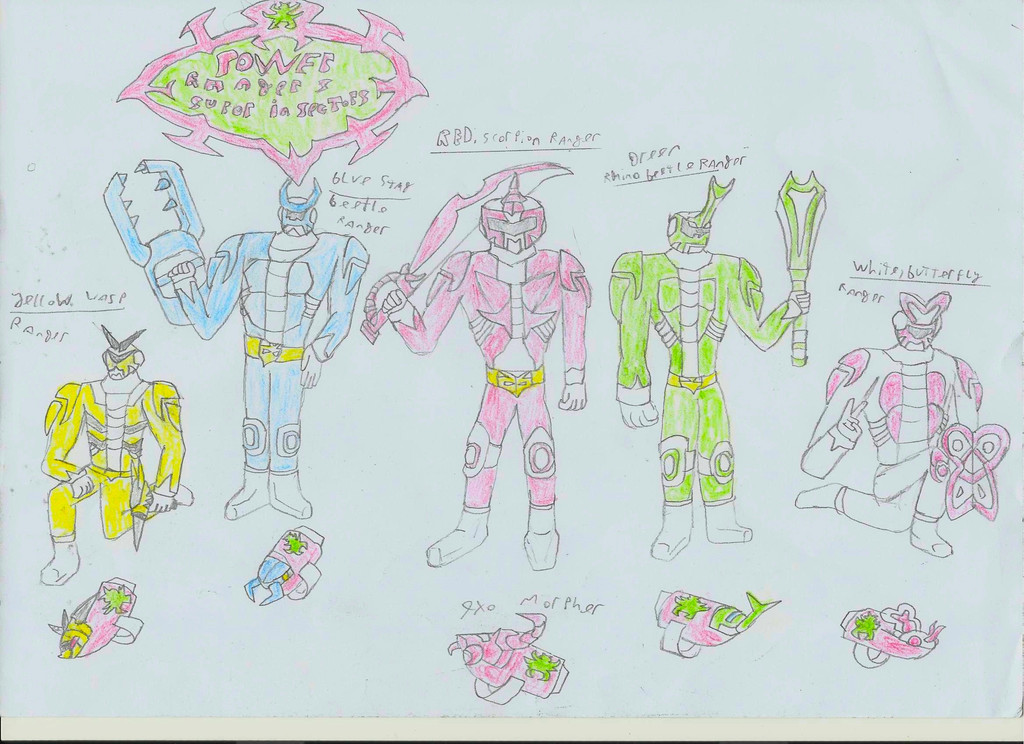 POWER
RANGERS
SUPER inSECTORS
RED, scorpion RANGER
Green
Rhino beetle RANGER
blue STAG
beetle
RANGER
White, butterfly
RANGER
yellow, WASP
RANGER
exo MorPher